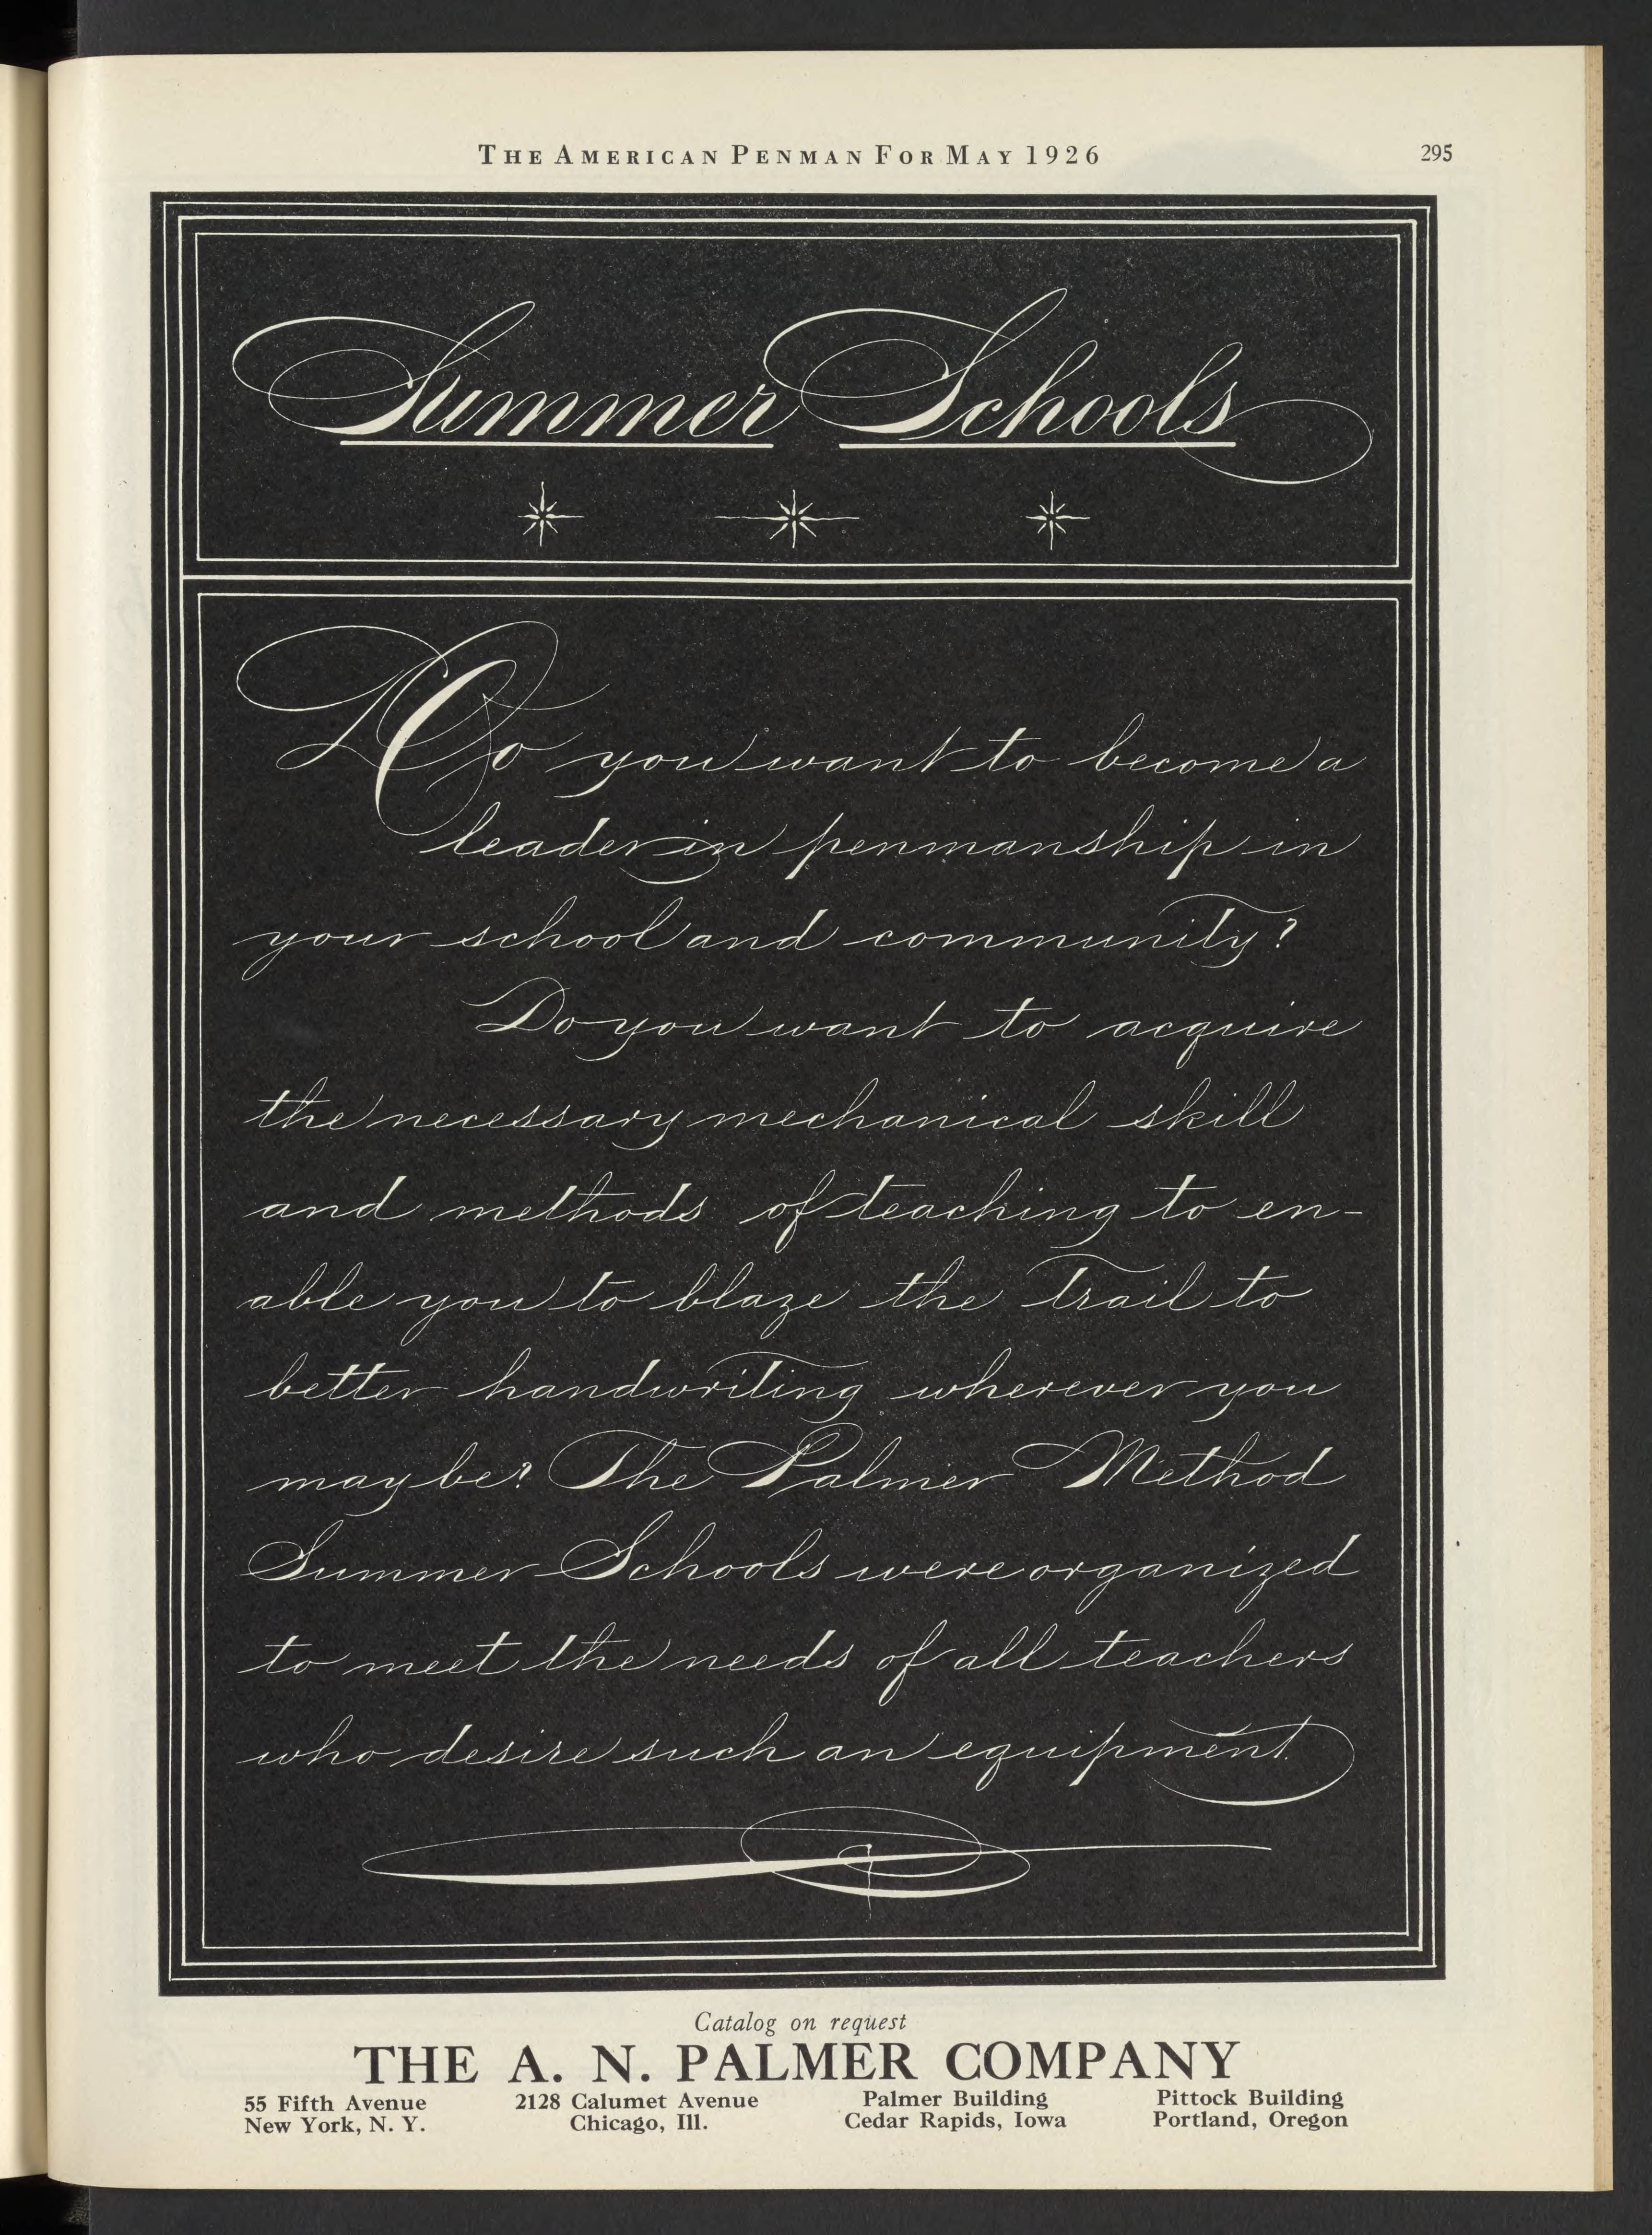 THE AMERICAN PENMAN FOR MAY 1926 295
Summer Schools
Do you want to become a
leader in penmanship in
your school and community?
Do you want to acquire
the necessary mechanical skill
and methods of teaching to en-
able you to blaze the trail to
better handwriting wherever you
may be? The Palmer Method
Summer Schools were organized
to meet the needs of all teachers
who desire such an equipment.
Catalog on request
THE A. N. PALMER COMPANY
55 Fifth Avenue 2128 Calumet Avenue Palmer Building Pittock Building
New York, N. Y. Chicago, Ill. Cedar Rapids, Iowa Portland, Oregon